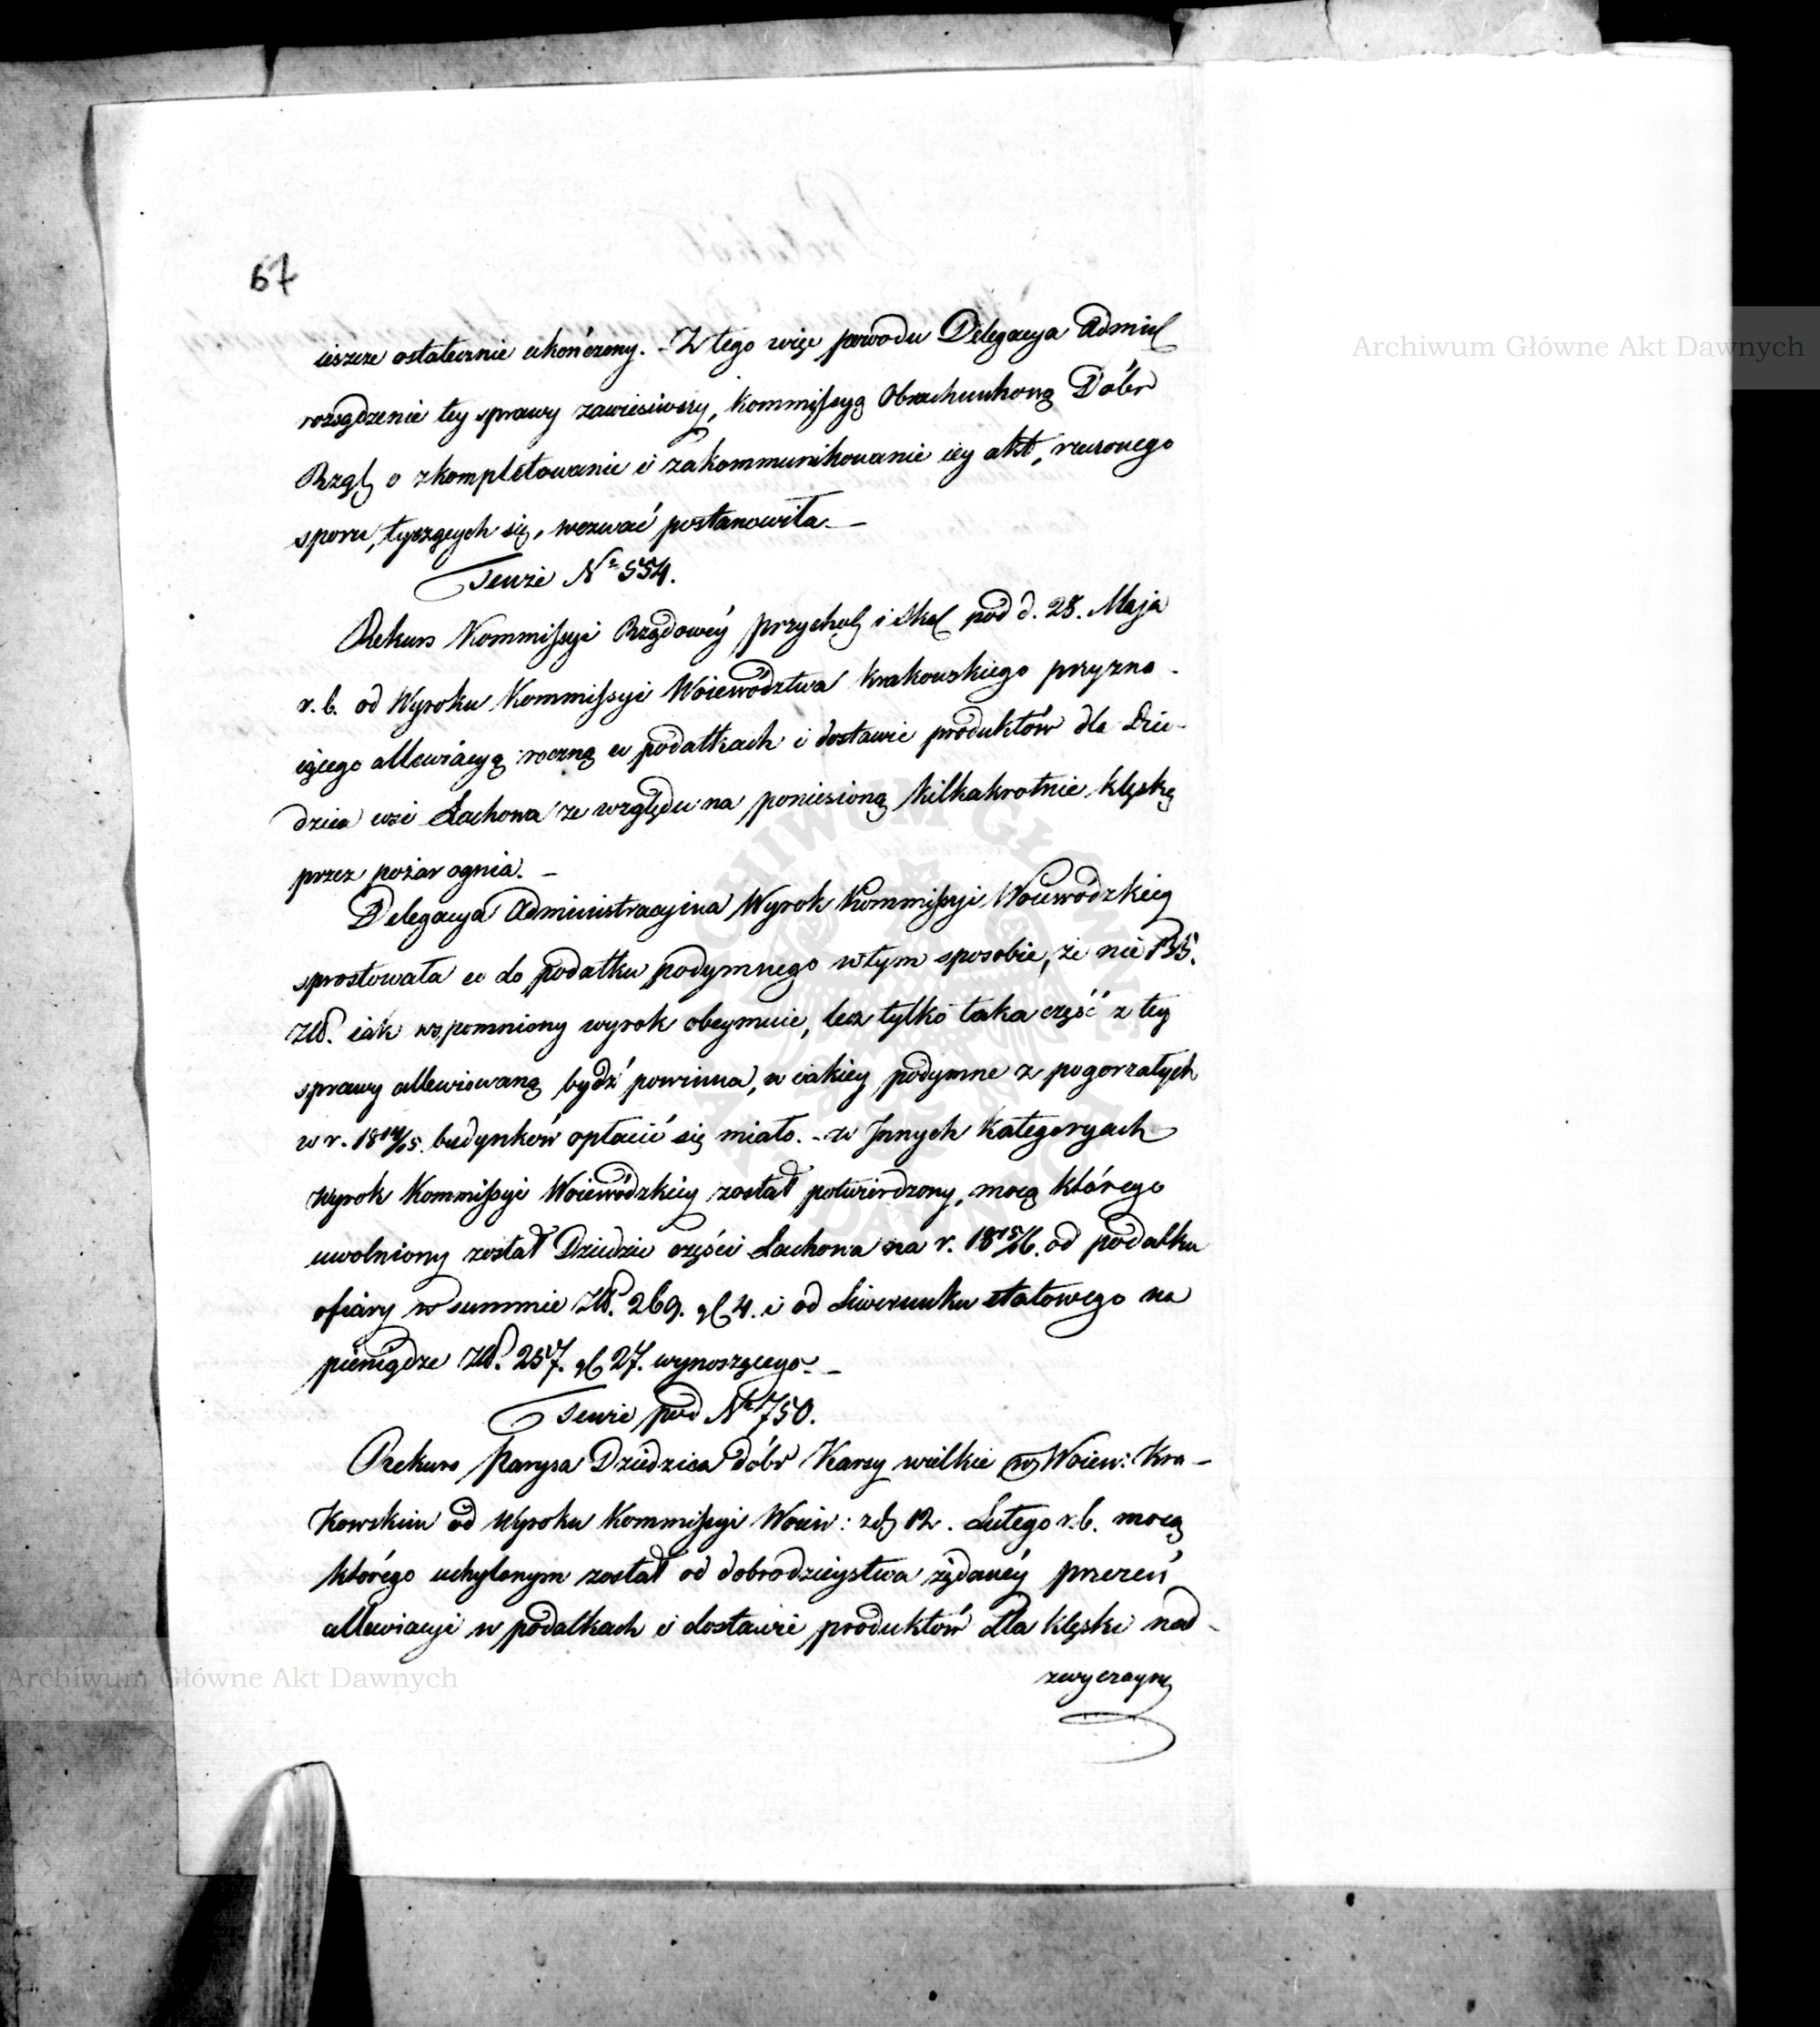 67
ieszcze ostatecznie ukończony. – Z tego więc powodu Delegacya Admin
rozsądzenie tey sprawy zawiesiwszy, kommissyą Obrachunkową Dóbr
Rząd o skompletowanie i zakommunikowanie iey akt, rzeczonego
sporu, tyczących się, wezwać postanowiła. –
Tenże Nº 554.
Rekurs Kommissyi Rządowéy przych i Skar pod d. 28. Maja
r. b. od Wyroku Kommissyi Woiewództwa Krakowskiego przyzna-
iącego allewiacyą roczną w podatkach i dostawie produktów dla Dzie-
dzica wsi Lachowa ze względu na poniesioną kilkakrotnie klęskę
przez pożar ognia. –
Delegacya Administracyina Wyrok Kommissyi Woiewódzkiey
sprostowała co do podatku podymnego w tym sposobie, że nie 135.
Złł. iak wspomniony wyrok obeymuie, lecz tylko taka część z tey
sprawy allewiowaną bydź powinna, w iakiey podymne z pogorzałych
w r. 1814/15. budynków opłacić się miało. – w Innych Kategoryach
Wyrok Kommissyi Woiewódzkiey został potwierdzony, mocą którego
uwolniony został Dziedzic części Lachowa na r. 1815/16. od podatku
ofiary w summie Złł. 269. gr 4. i od Liwerunku etatowego na
pieniądze Złł. 257. gr 27. wynoszącego. –
Tenże pod Nr 750.
Rekurs Parysa Dziedzica dóbr Karsy wielkie w Woiew: Kra-
kowskim od Wyroku Kommissyi Woiew: zd 12. Lutego r. b. mocą
którego uchylonym został od dobrodzieystwa żądanéy przezeń
allewiacyi w podatkach i dostawie produktów dla klęski nad-
zwyczayney
Archiwum Główne Akt Dawnych
Archiwum Główne Akt Dawnych
ARCHIWUM GŁÓWNE AKT DAWNYCH